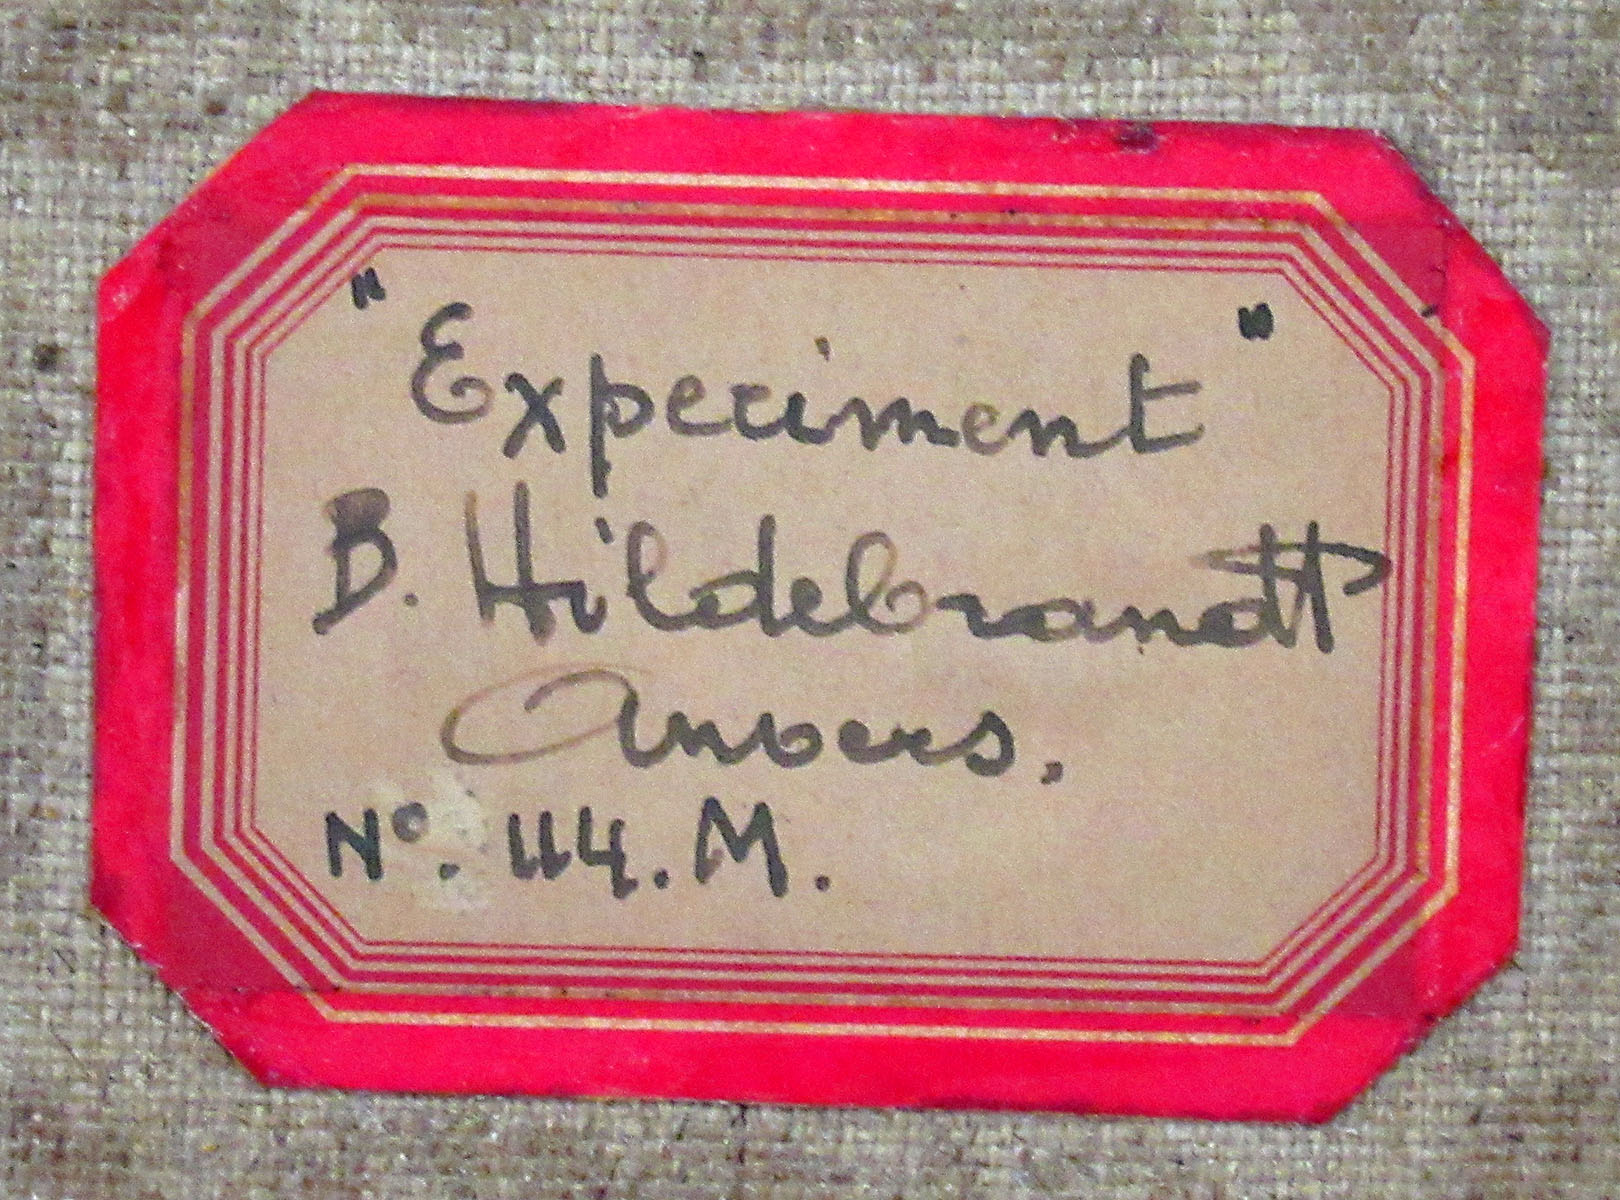 "Experiment"
B. Hildebrandt
Anvers.
Nº. 114. M.